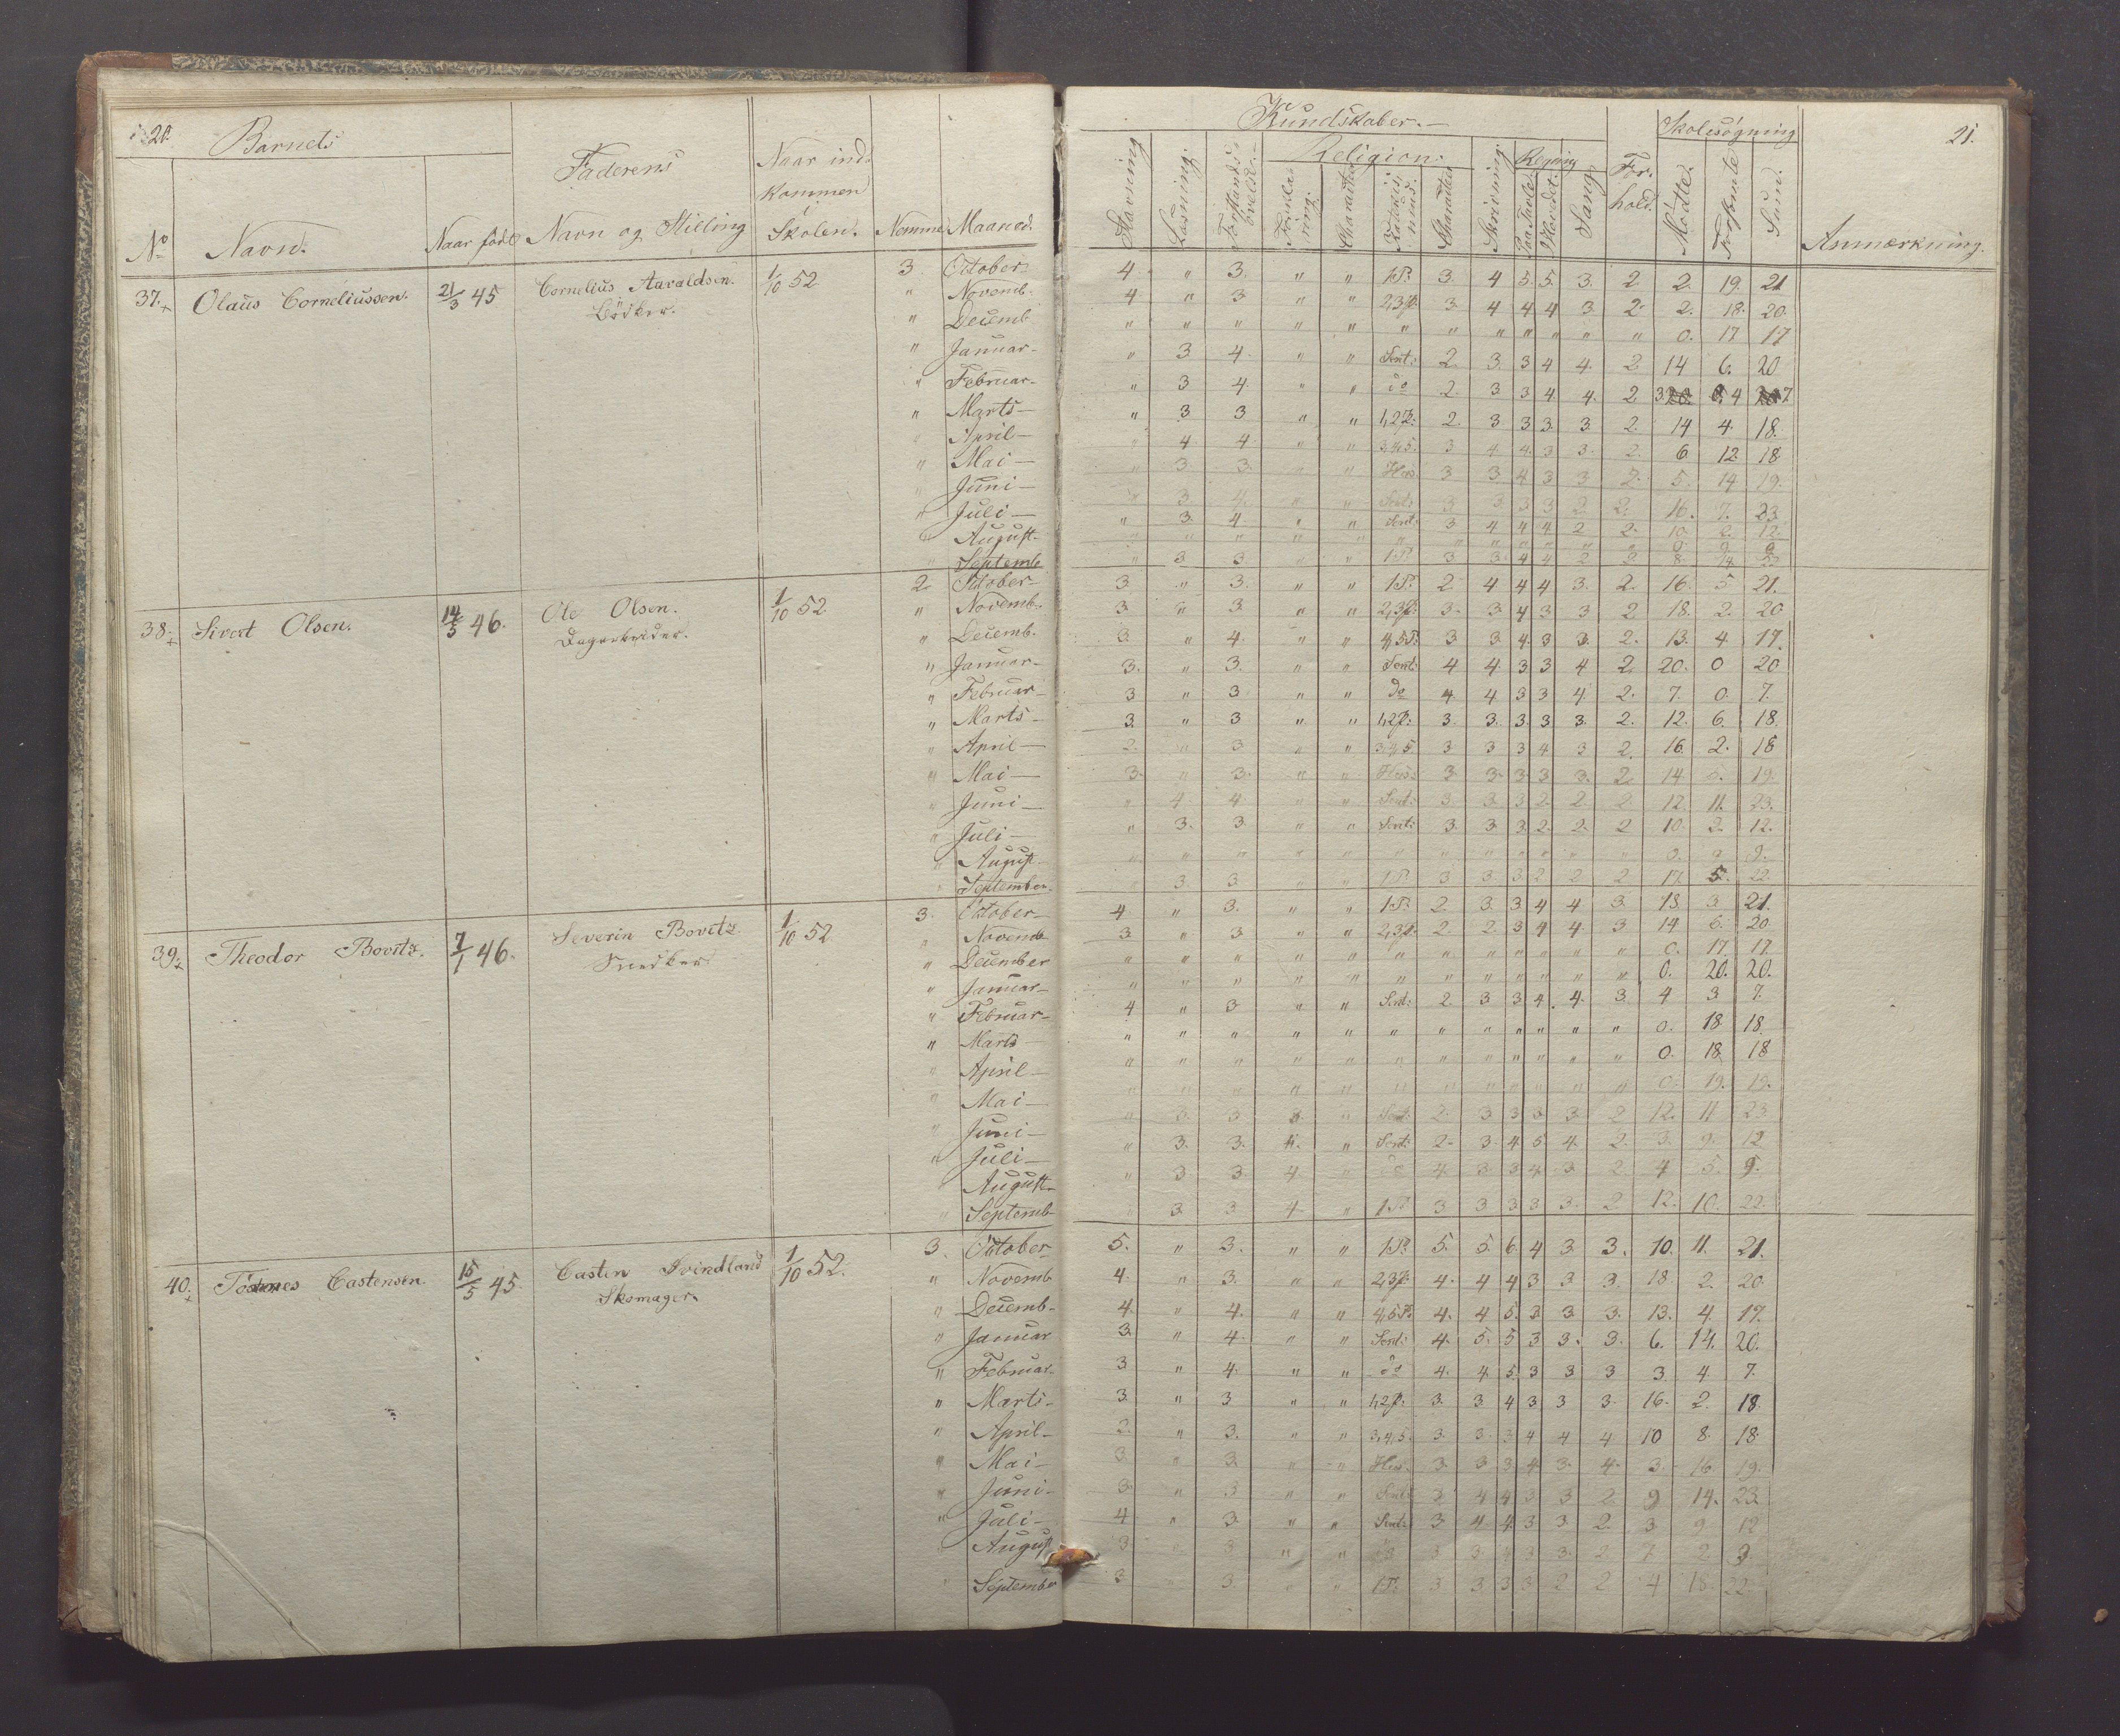 20.
Barnets
Faderens
Naar ind-
kommen
i
No Navn. Naar født Navn og Stilling Skolen. Nemme Maaned.
37. Olaus Corneliussen. 21/3 45 Cornelius Aavaldsen. 1/10 52 3. October
Bödker. " Novemb.
" Decemb
" Januar
" Februar
" Marts
" April
" Mai
" Juni
" Juli
" August
" Septemb
38. Sivert Olsen. 14/5 46. Ole Olsen. 1/10 52 2. October
" Novemb.
" Decemb.
" Januar
" Februar
" Marts
" April
" Mai
" Juni
" Juli
" August
" September
39. Theodor Bovitz. 7/1 46. Severin Bovitz 1/10 52 3. October
Snedker " Novemb
" December
" Januar
" Februar
" Marts
" April
" Mai
" Juni
" Juli
" August
" Septemb
40. Castensen 15/5 45. Casten Svindland 1/10 52. 3. October
Skomager. " Novemb
" Decemb
" Januar
" Februar
" Marts
" April
" Mai
" Juni
" Juli
" August
" September
21.
Kundskaber.
Skolesøgning
Religion. Regning
Stavning Læsning. Forstands- øvelse. Forklaring. Charakter Katekismus. Charakter Skrivning. Paa Tavle. I Hovedet. Sang. Forhold. Mødte. Forsømte Sum. Anmærkning.
4. " 3. " " 1P. 3. 4 5. 5. 3. 2. 2. 19. 21
4. " 3 " " 2,3p. 3. 4 4 4 3. 2. 2. 18. 20.
" " " " " " " " " " " " 0. 17 17
" 3. 4. " " Sent: 2. 3. 3 4 4. 2 14 6. 20
" 3 4. " " do 2. 3 3 4 4. 2 3 4 7.
" 3 3 " " 1,2P. 2. 3 3 3. 3. 2. 14 4. 18.
" 4 4 " " 3,4,5. 3 4. 4. 3 3. 2. 6 12. 18
" 3. 3. " " 3 3 4 3 3 2. 5. 14 19.
" 3 4. " " Sent: 3 3 3 3 2 2. 16. 7. 23.
" 3. 4 " " Sent: 3 4 4 4 2 2. 10. 2. 12.
" " " " " " " " " " " " 0. 9. 9
" 3 3. " " 1P. 3 3. 4 4 2 2 8. 14. 22
3 " 3. " " 1P. 2 4 4 4 3. 2. 16. 5 21.
3. " 3. " " 2,3p. 3. 3. 4 3 3 2 18. 2. 20
3. " 4. " " 4,5P. 3 3 4. 3 3. 2. 13. 4. 17.
3. " 3. " " Sent: 4 4. 3 3 4 2. 20. 0 20
3 " 3 " " do 4. 4 3 3 4. 2. 7. 0. 7.
3. " 3 " " 1,2p. 3. 3. 3. 3 3. 2. 12. 6. 18.
2. " 3 " " 3,4,5 3 3 3 4 3 2. 16. 2. 18
3. " 3. " " 3 3. 3. 3 3. 2. 14 5. 19.
" 4. 4. " " Sent: 3 3. 3 2. 2. 2 12. 11. 23.
" 3. 3. " " Sent: 3. 3. 3. 2. 2. 2 10 2. 12.
" " " " " " " " " " " " 0. 9 9.
" 3. 3 " " 1P. 3 3. 3. 2 2 2 17. 5. 22
4 " 3. " " 1P. 2. 3. 3. 4 4 3. 18. 3. 21.
3 " 3 " " 2,3p. 2. 2 3 4 4. 3 14 6. 20.
" " " " " " " " " " " " 0. 17. 17.
" " " " " " " " " " " " 0. 20. 20.
4 " 3 " " Sent: 2 3 3 4. 4. 3. 4 3 7.
" " " " " " " " " " " " 0. 18 18.
" " " " " " " " " " " " 0. 18. 18
" " " " " " " " " " " " 0. 19. 19.
" 3. 3 3. " Sent: 2. 3 3 3. 3. 2 12. 11 23
" 3. 3. 4. " Sent: 2. 3. 4 5 4. 2. 3. 9. 12
" 3 3. 4. " do 4. 3. 3 4. 3. 2 4 5. 9.
" 3. 3 4. " 1P. 3 3 3 3 3. 2 12. 10. 22.
5. " 3. " " 1P. 5. 5. 6. 4 3. 3. 10. 11. 21.
4. " 3. " " 2,3p. 4. 4 4 3 3 3. 18. 2. 20
4. " 4. " " 4,5P. 4. 4 5. 3. 3 3. 13. 4. 17.
3. " 4. " " Sent: 4. 5. 5 3 3. 3. 6. 14. 20.
3 " 4. " " do 4. 4 5. 3 3 3 3 4. 7.
3. " 3 " " 1,2p. 3. 3. 4 3 3 3. 16. 2. 18.
3. " 3. " " 3,4,5. 3. 3. 3 4 4 4 10 8. 18.
3 " 3 " " 3. 3 3 4 3. 4. 3. 16 19.
3. " 3 " " Sent: 3 4 4 3 3 2 9 14. 23.
4 " 3. " " Sent: 3 4 4 3 3 2. 3 9. 12
3 " 3 " " do 3 3. 4 3 3. 2. 7 2.
3 " 3. " " 1P. 3 3 3 3 2 2 4 18. 22.